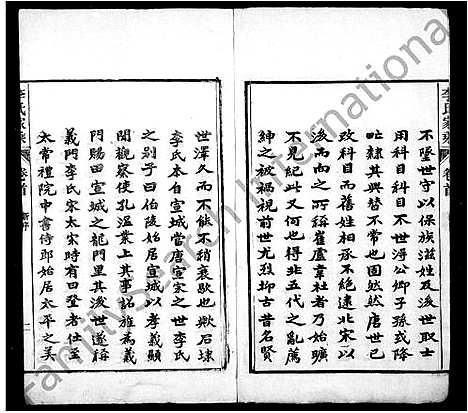 不墜世守以保族滋姓及後世取士
用科目科目不世得公卿子孫或降
在隸其興替不常也固然然唐世已
後而之所稱崔盧韋杜者乃始曠
然而衣冠世族相承不絕逮北宋以
不見紀此又何也得非五代之亂薦
紳之被禍視前世尤烈抑古昔名賢
李氏家乘
卷首
世澤久而不能不稍衰歇也歟石埭
李氏本自宣城當唐宣宗之世李氏
之别子曰伯陵始居宣城以孝義顯
聞觀察使孔溫業上其事詔旌為義
門賜田宣城之龍門里其後世遂稱
義門李氏宋太宗時有曰登者仕至
太常禮院中書侍郎始居太平之美
李氏家乘
卷首
舊序
二
FamilySearch International